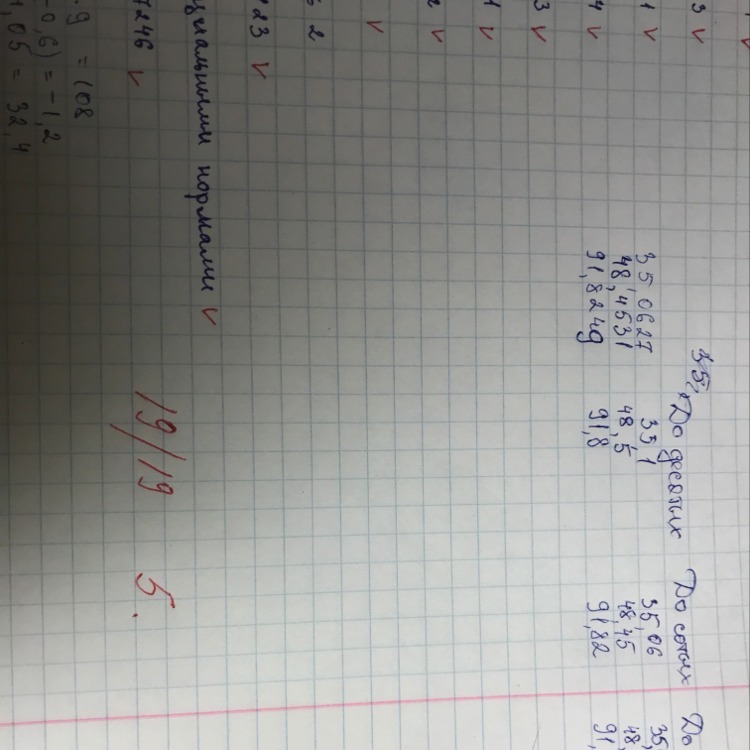 3 ✓
35, До десятых До сотых До
1 ✓ 35,0627 35,1 35,06 35,
48,4531 48,5 48,45 48
4 ✓ 91,8249 91,8 91,82 91,
3 ✓
1 ✓
2 ✓
✓
2
23 ✓
циальными нормами ✓
7246 ✓ 19/19 5.
9 = 108
-0,6) = -1,2
1,05 = 32,4